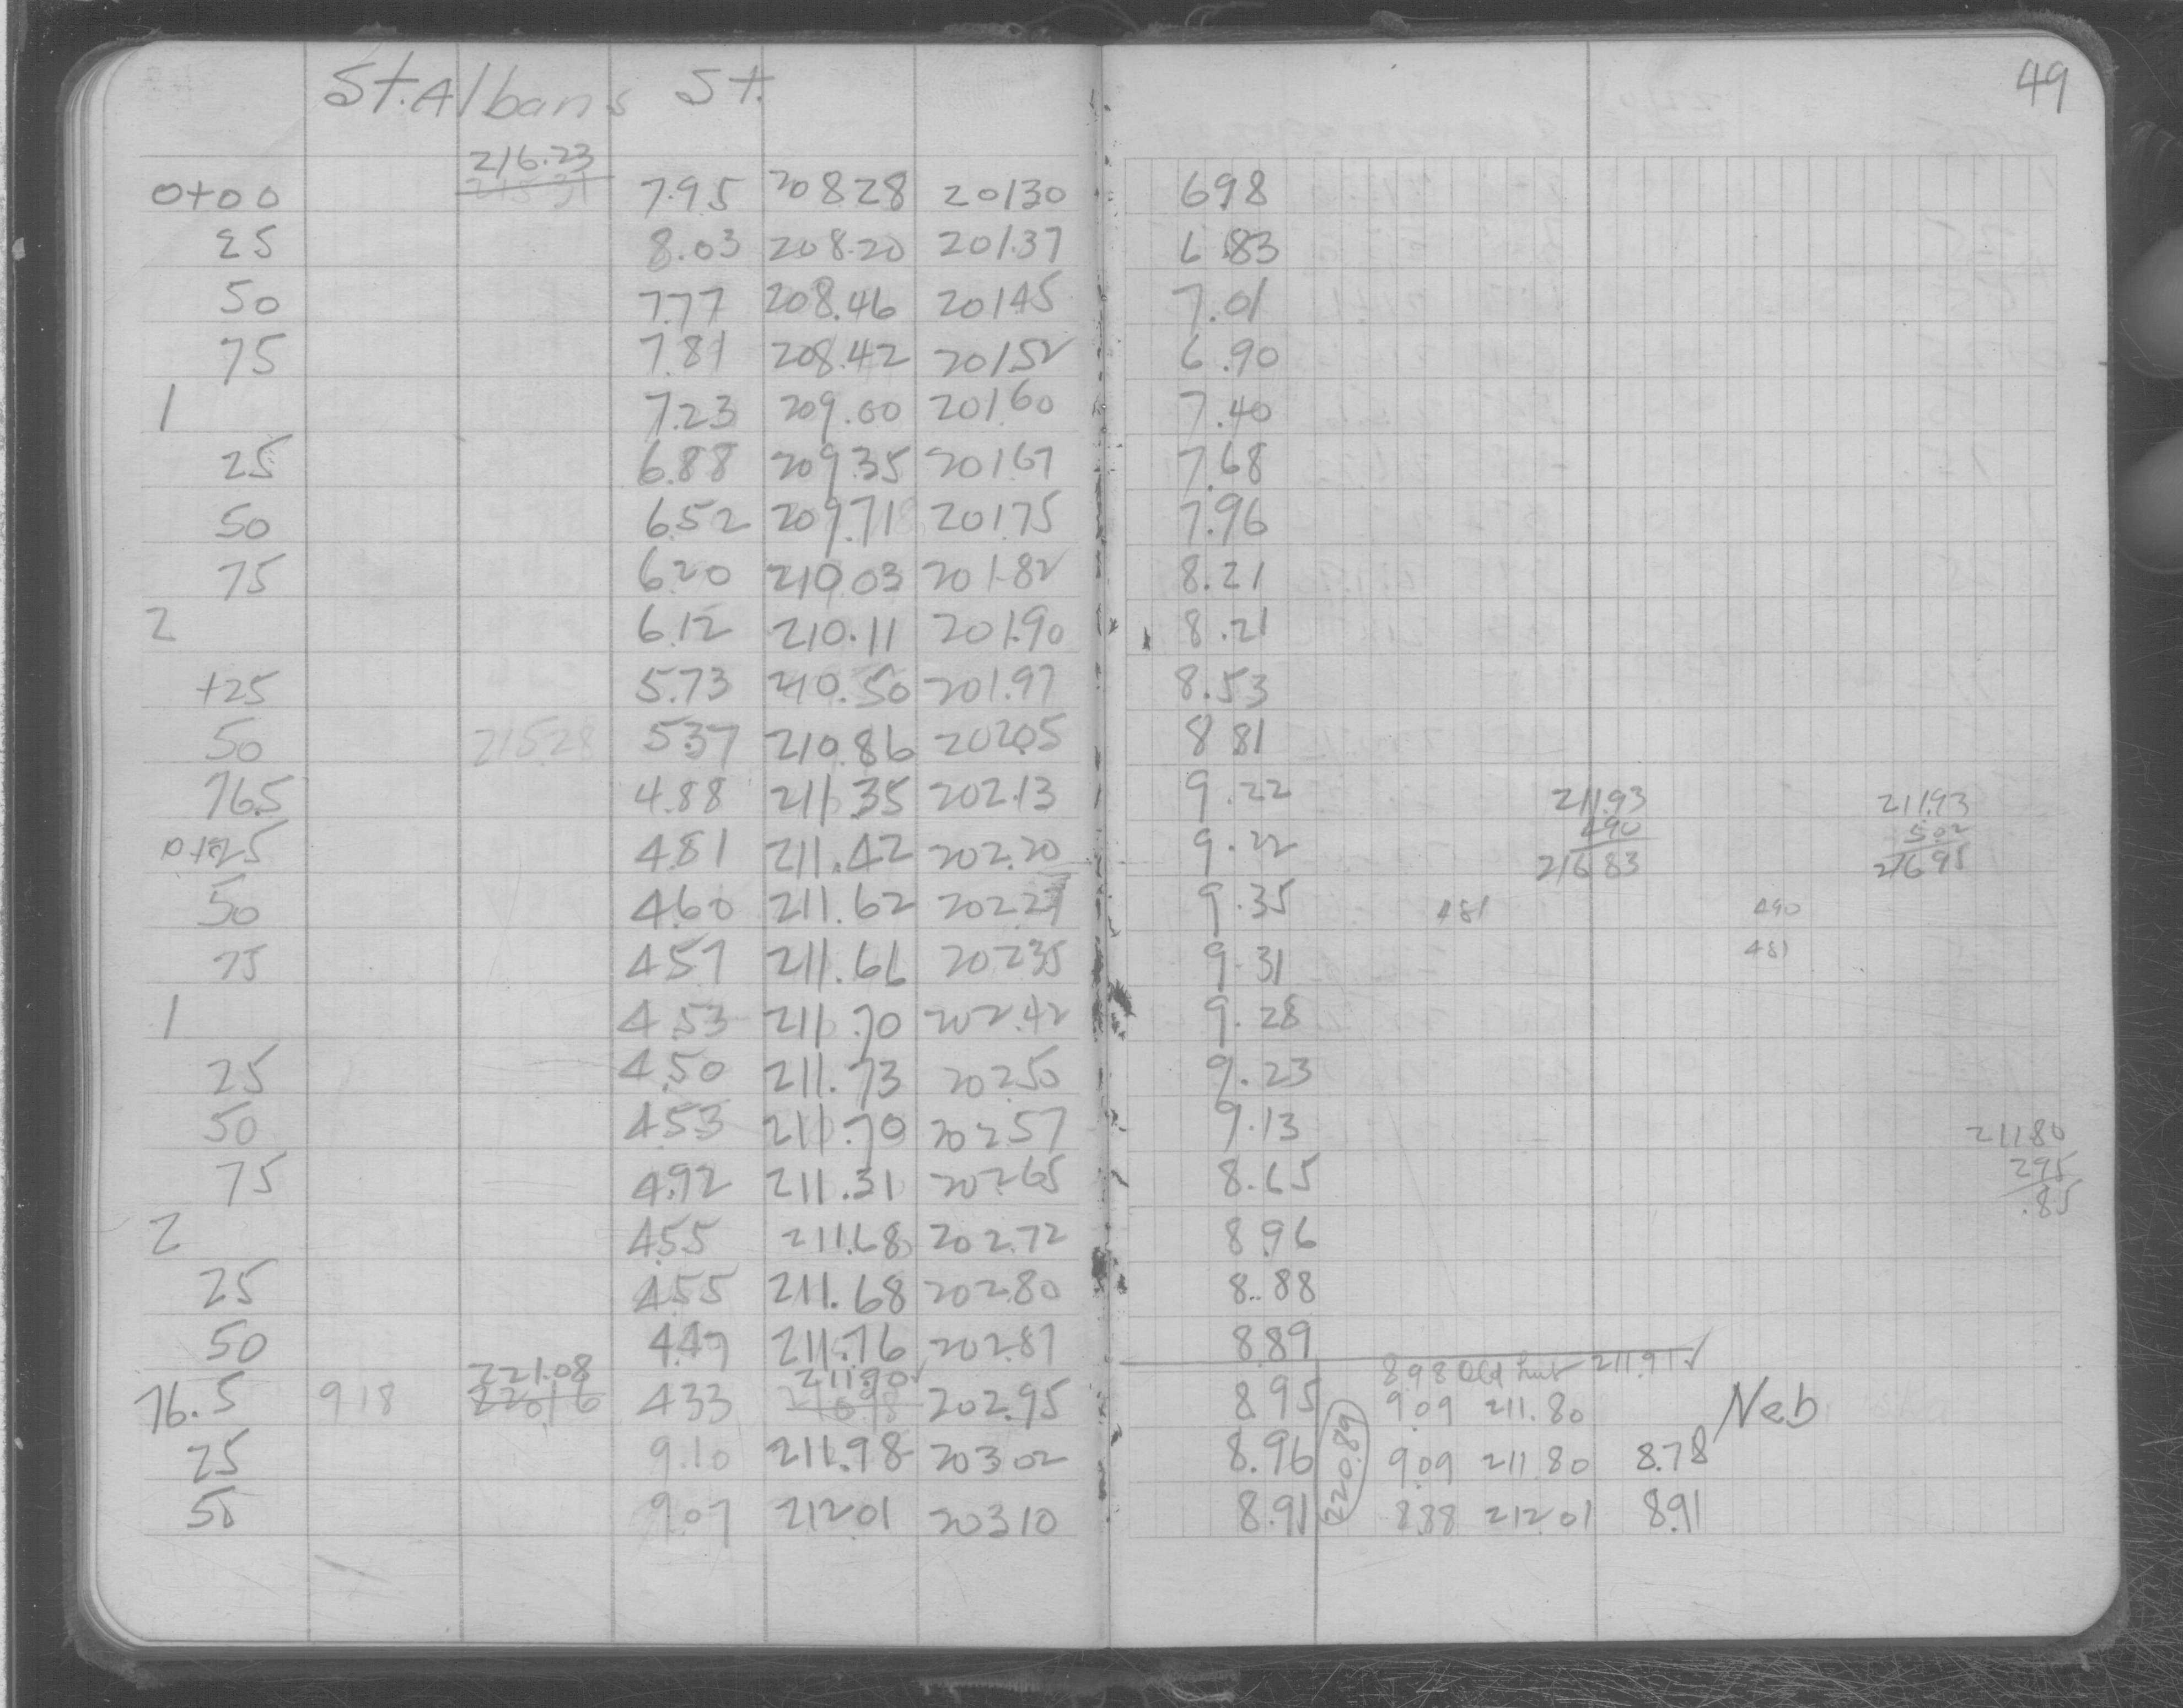 49
St. Albans St.
216.23
0+00 7.95 208 28 201 30 698
25 8.03 208.20 201.37 6.83
50 7.77 208.46 201 45 7.01
75 7.81 208.42 201 52 6.90
1 7.23 209.00 201.60 7.40
25 6.88 209.35 201 67 7.68
50 6.52 209.71 201 75 7.96
75 6.20 210.03 201.82 8.21
2 6.12 210.11 201.90 8.21
+25 5.73 210.50 201.97 8.53
50 215.28 5.37 210.86 202.05 8 81
76.5 4.88 211.35 202.13 9.22 211.93 211.93
0+25 4.81 211.42 202.20 9.22 490 5.02
216 83 216 95
50 4.60 211.62 202.27 9.35 481 490
75 4.57 211.66 202 35 9.31 481
1 4.53 211.70 202.42 9.28
25 4.50 211.73 202 50 9.23
50 4.53 211.70 202 57 9.13 211.80
75 4.92 211.31 202 65 8.65 295
.85
2 4.55 211.68 202.72 8 96
25 4.55 211.68 202.80 8.88
50 4.47 211.76 202.87 8.89
221.08 211.90 8.98 Old hub 211.91 ✓
76.5 9 18 220.16 4 33 202.95 8.95 9.09 211.80 Neb
25 9.10 211.98 203 02 8.96 220.89 9.09 211 80 8.78
50 9.07 212 01 203 10 8.91 8.88 212 01 8.91